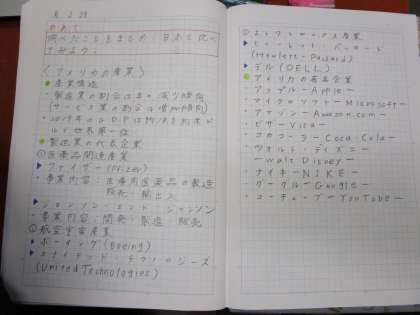 めあて
調べたことをまとめ、日本と比べてみよう。
〈アメリカの産業〉
●産業構造
・製造業の割合は
(サービス業の割合は増加傾向)
GDPは約
ドルで世界第一位
●製造業の代表企業
①医薬品関連産業
▶ファイザー(Pfizer)
・事業内容:医療用医薬品の製造
販売・輸出入
▶ジョンソン・エンド・ジョンソン
・事業内容:開発・製造・販売
②航空宇宙産業
▶ボーイング(Boeing)
▶ユナイテッド・テクノロジーズ
(United Technologies)
③エレクトロニクス産業
▶ヒューレット・パッカード
(Hewlett-Packard)
▶デル(DELL)
●アメリカの有名企業
・アップル-Apple-
・マイクロソフト-Microsoft-
・アマゾン-Amazon.com-
・ビザ-Visa-
・コカコーラ-Coca-Cola-
・ウォルト・ディズニー
-Walt Disney-
・ナイキ-NIKE-
・グーグル-Google-
・ユーチューブ-YouTube-